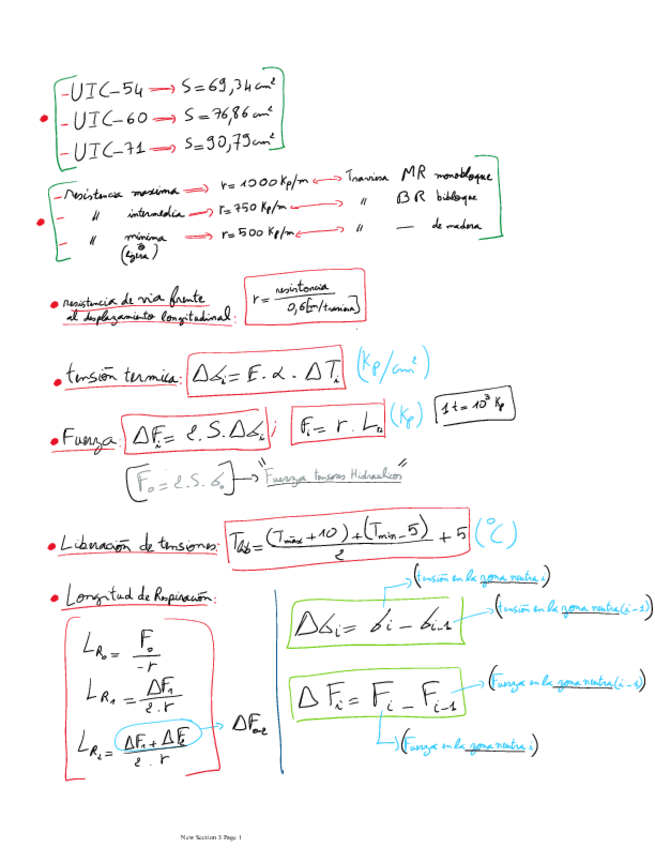 - UIC-54 → S=69,34 cm²
- UIC-60 → S=76,86 cm²
- UIC-71 → S=90,79 cm²
- Resistencia maxima → r=1000 Kp/m ↔ Traviesa MR monobloque
- " intermedia → r=750 Kp/m ↔ " BR bibloque
- " mínima → r=500 Kp/m ↔ " — de madera
resistencia de via frente
al desplazamiento longitudinal: r = resistencia / 0,6[m/traviesa]
tensión termica: Δσᵢ = E. α. ΔTᵢ (Kp/cm²)
Fuerza: ΔFᵢ = 2.S.Δσᵢ ; Fᵢ = r. Lᵤ (Kp) 1t = 10³ Kp
[F₀ = 2.S.σ₀] → "Fuerza tensores Hidraulicos"
Liberación de tensiones: Tlib = ((Tmáx + 10) + (Tmin - 5)) / 2 + 5 (°C)
Longitud de Respiración:
(tensión en la zona neutra i)
Δσᵢ = σᵢ - σᵢ₋₁
(tensión en la zona neutra (i-1))
L_R₀ = F₀ / -r
L_R₁ = ΔF₁ / 2.r
(Fuerza en la zona neutra (i-1))
ΔFᵢ = Fᵢ - Fᵢ₋₁
L_Rᵢ = (ΔF₁ + ΔF₂) / 2.r → ΔF₀₋₂
(Fuerza en la zona neutra i)
New Section 3 Page 1